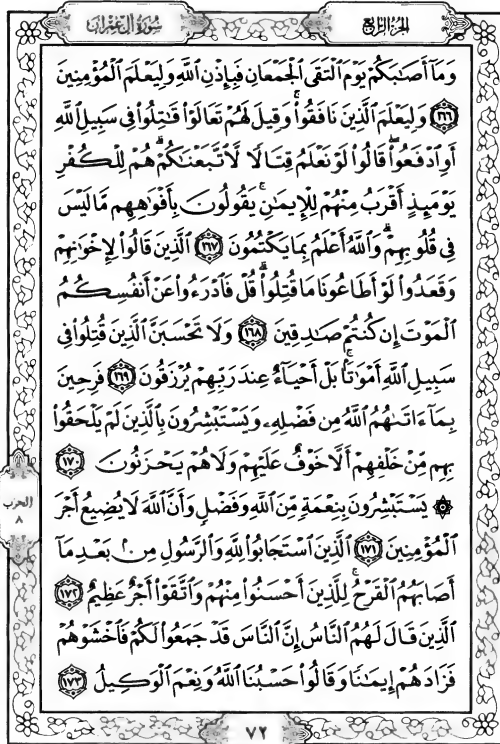 سُورَةُ آلِ عِمْرَان
الجُزْءُ الرَّابِعُ
وَمَآ أَصَٰبَكُمْ يَوْمَ ٱلْتَقَى ٱلْجَمْعَانِ فَبِإِذْنِ ٱللَّهِ وَلِيَعْلَمَ ٱلْمُؤْمِنِينَ
١٦٦ وَلِيَعْلَمَ ٱلَّذِينَ نَافَقُواْ ۚ وَقِيلَ لَهُمْ تَعَالَوْاْ قَٰتِلُواْ فِى سَبِيلِ ٱللَّهِ
أَوِ ٱدْفَعُواْ ۖ قَالُواْ لَوْ نَعْلَمُ قِتَالًا لَّٱتَّبَعْنَٰكُمْ ۗ هُمْ لِلْكُفْرِ
يَوْمَئِذٍ أَقْرَبُ مِنْهُمْ لِلْإِيمَٰنِ ۚ يَقُولُونَ بِأَفْوَٰهِهِم مَّا لَيْسَ
فِى قُلُوبِهِمْ ۗ وَٱللَّهُ أَعْلَمُ بِمَا يَكْتُمُونَ ١٦٧ ٱلَّذِينَ قَالُواْ لِإِخْوَٰنِهِمْ
وَقَعَدُواْ لَوْ أَطَاعُونَا مَا قُتِلُواْ ۗ قُلْ فَٱدْرَءُواْ عَنْ أَنفُسِكُمُ
ٱلْمَوْتَ إِن كُنتُمْ صَٰدِقِينَ ١٦٨ وَلَا تَحْسَبَنَّ ٱلَّذِينَ قُتِلُواْ فِى
سَبِيلِ ٱللَّهِ أَمْوَٰتًۢا ۚ بَلْ أَحْيَآءٌ عِندَ رَبِّهِمْ يُرْزَقُونَ ١٦٩ فَرِحِينَ
بِمَآ ءَاتَىٰهُمُ ٱللَّهُ مِن فَضْلِهِۦ وَيَسْتَبْشِرُونَ بِٱلَّذِينَ لَمْ يَلْحَقُواْ
بِهِم مِّنْ خَلْفِهِمْ أَلَّا خَوْفٌ عَلَيْهِمْ وَلَا هُمْ يَحْزَنُونَ ١٧٠
۞ يَسْتَبْشِرُونَ بِنِعْمَةٍ مِّنَ ٱللَّهِ وَفَضْلٍ وَأَنَّ ٱللَّهَ لَا يُضِيعُ أَجْرَ
ٱلْمُؤْمِنِينَ ١٧١ ٱلَّذِينَ ٱسْتَجَابُواْ لِلَّهِ وَٱلرَّسُولِ مِنۢ بَعْدِ مَآ
أَصَابَهُمُ ٱلْقَرْحُ ۚ لِلَّذِينَ أَحْسَنُواْ مِنْهُمْ وَٱتَّقَوْاْ أَجْرٌ عَظِيمٌ ١٧٢
ٱلَّذِينَ قَالَ لَهُمُ ٱلنَّاسُ إِنَّ ٱلنَّاسَ قَدْ جَمَعُواْ لَكُمْ فَٱخْشَوْهُمْ
فَزَادَهُمْ إِيمَٰنًا وَقَالُواْ حَسْبُنَا ٱللَّهُ وَنِعْمَ ٱلْوَكِيلُ ١٧٣
الحزب
٨
٧٢